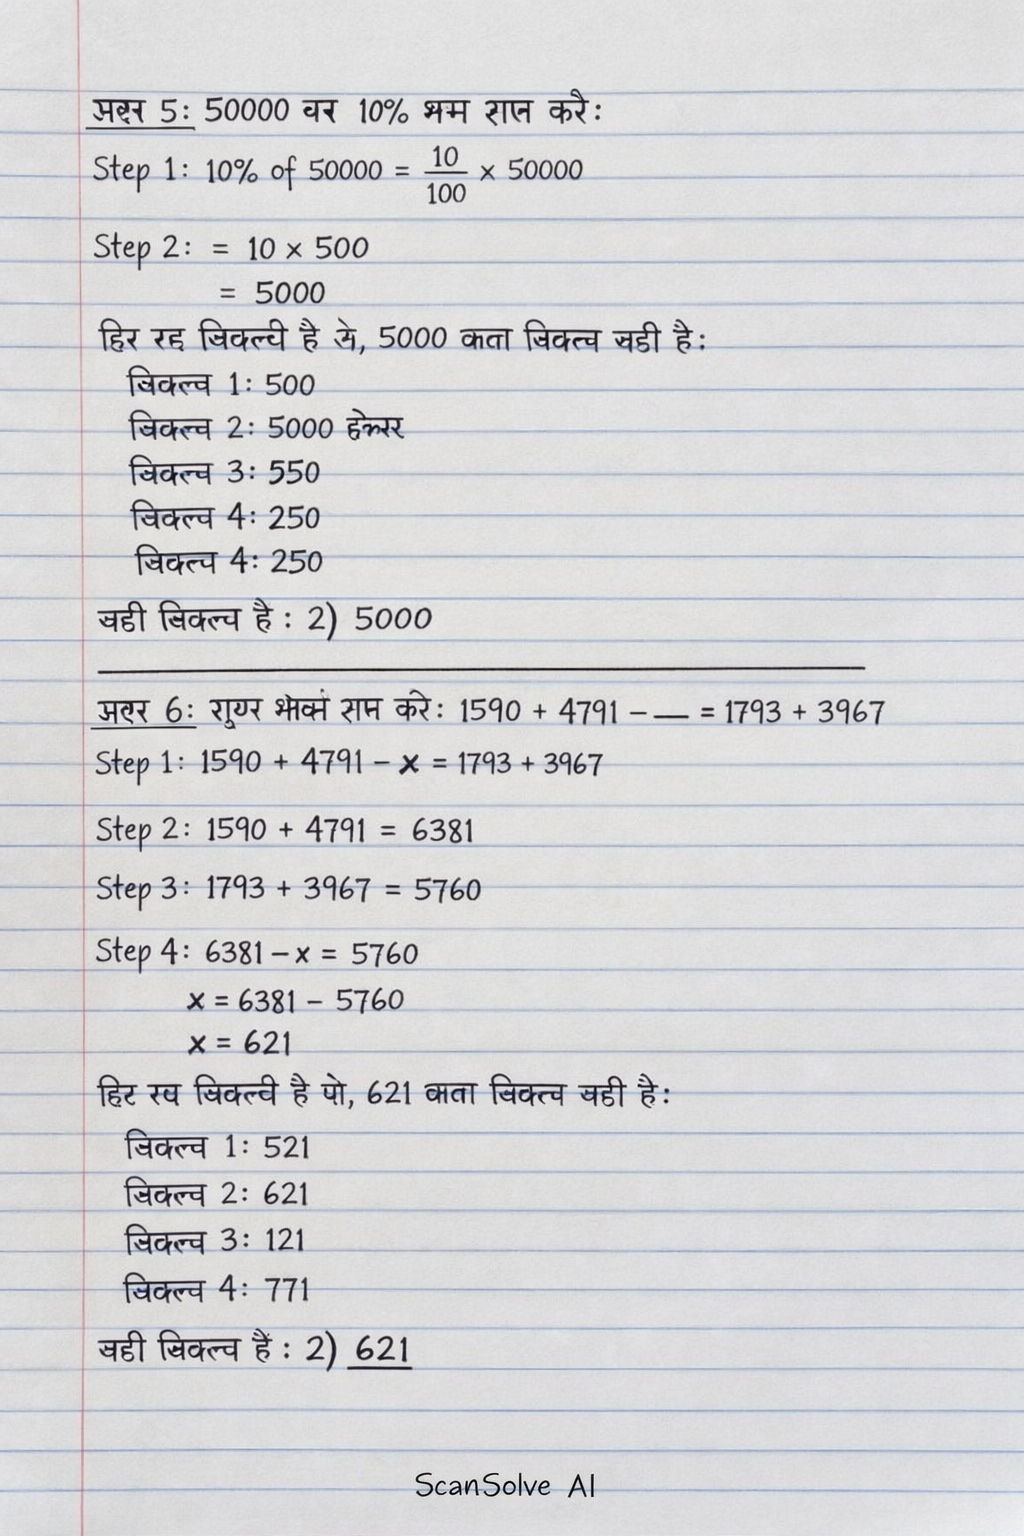 प्रश्न 5: 50000 वर 10% भम राान करै:
Step 1: 10% of 50000 = 10/100 × 50000
Step 2: = 10 × 500
= 5000
हिर रह विकल्ची है से, 5000 कता विकल्च चही है:
विकल्च 1: 500
विकल्च 2: 5000
विकल्च 3: 550
विकल्च 4: 250
विकल्च 4: 250
चही विकल्च है : 2) 5000
6: करे: 1590 + 4791 – — = 1793 + 3967
Step 1: 1590 + 4791 – x = 1793 + 3967
Step 2: 1590 + 4791 = 6381
Step 3: 1793 + 3967 = 5760
Step 4: 6381 – x = 5760
x = 6381 – 5760
x = 621
हिर रव विकल्वी है पो, 621 कता विकल्च चही है:
विकल्च 1: 521
विकल्च 2: 621
विकल्च 3: 121
विकल्च 4: 771
चही विकल्च है : 2) 621
ScanSolve AI